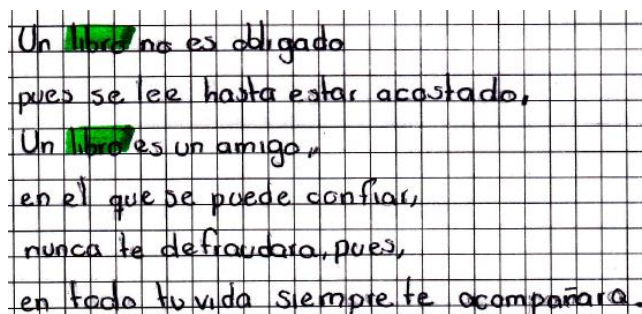 Un libro no es obligado
pues se lee hasta estar acostado,
Un libro es un amigo,,
en el que se puede confiar,
nunca te defraudara, pues,
en todo tu vida siempre te acompañara.